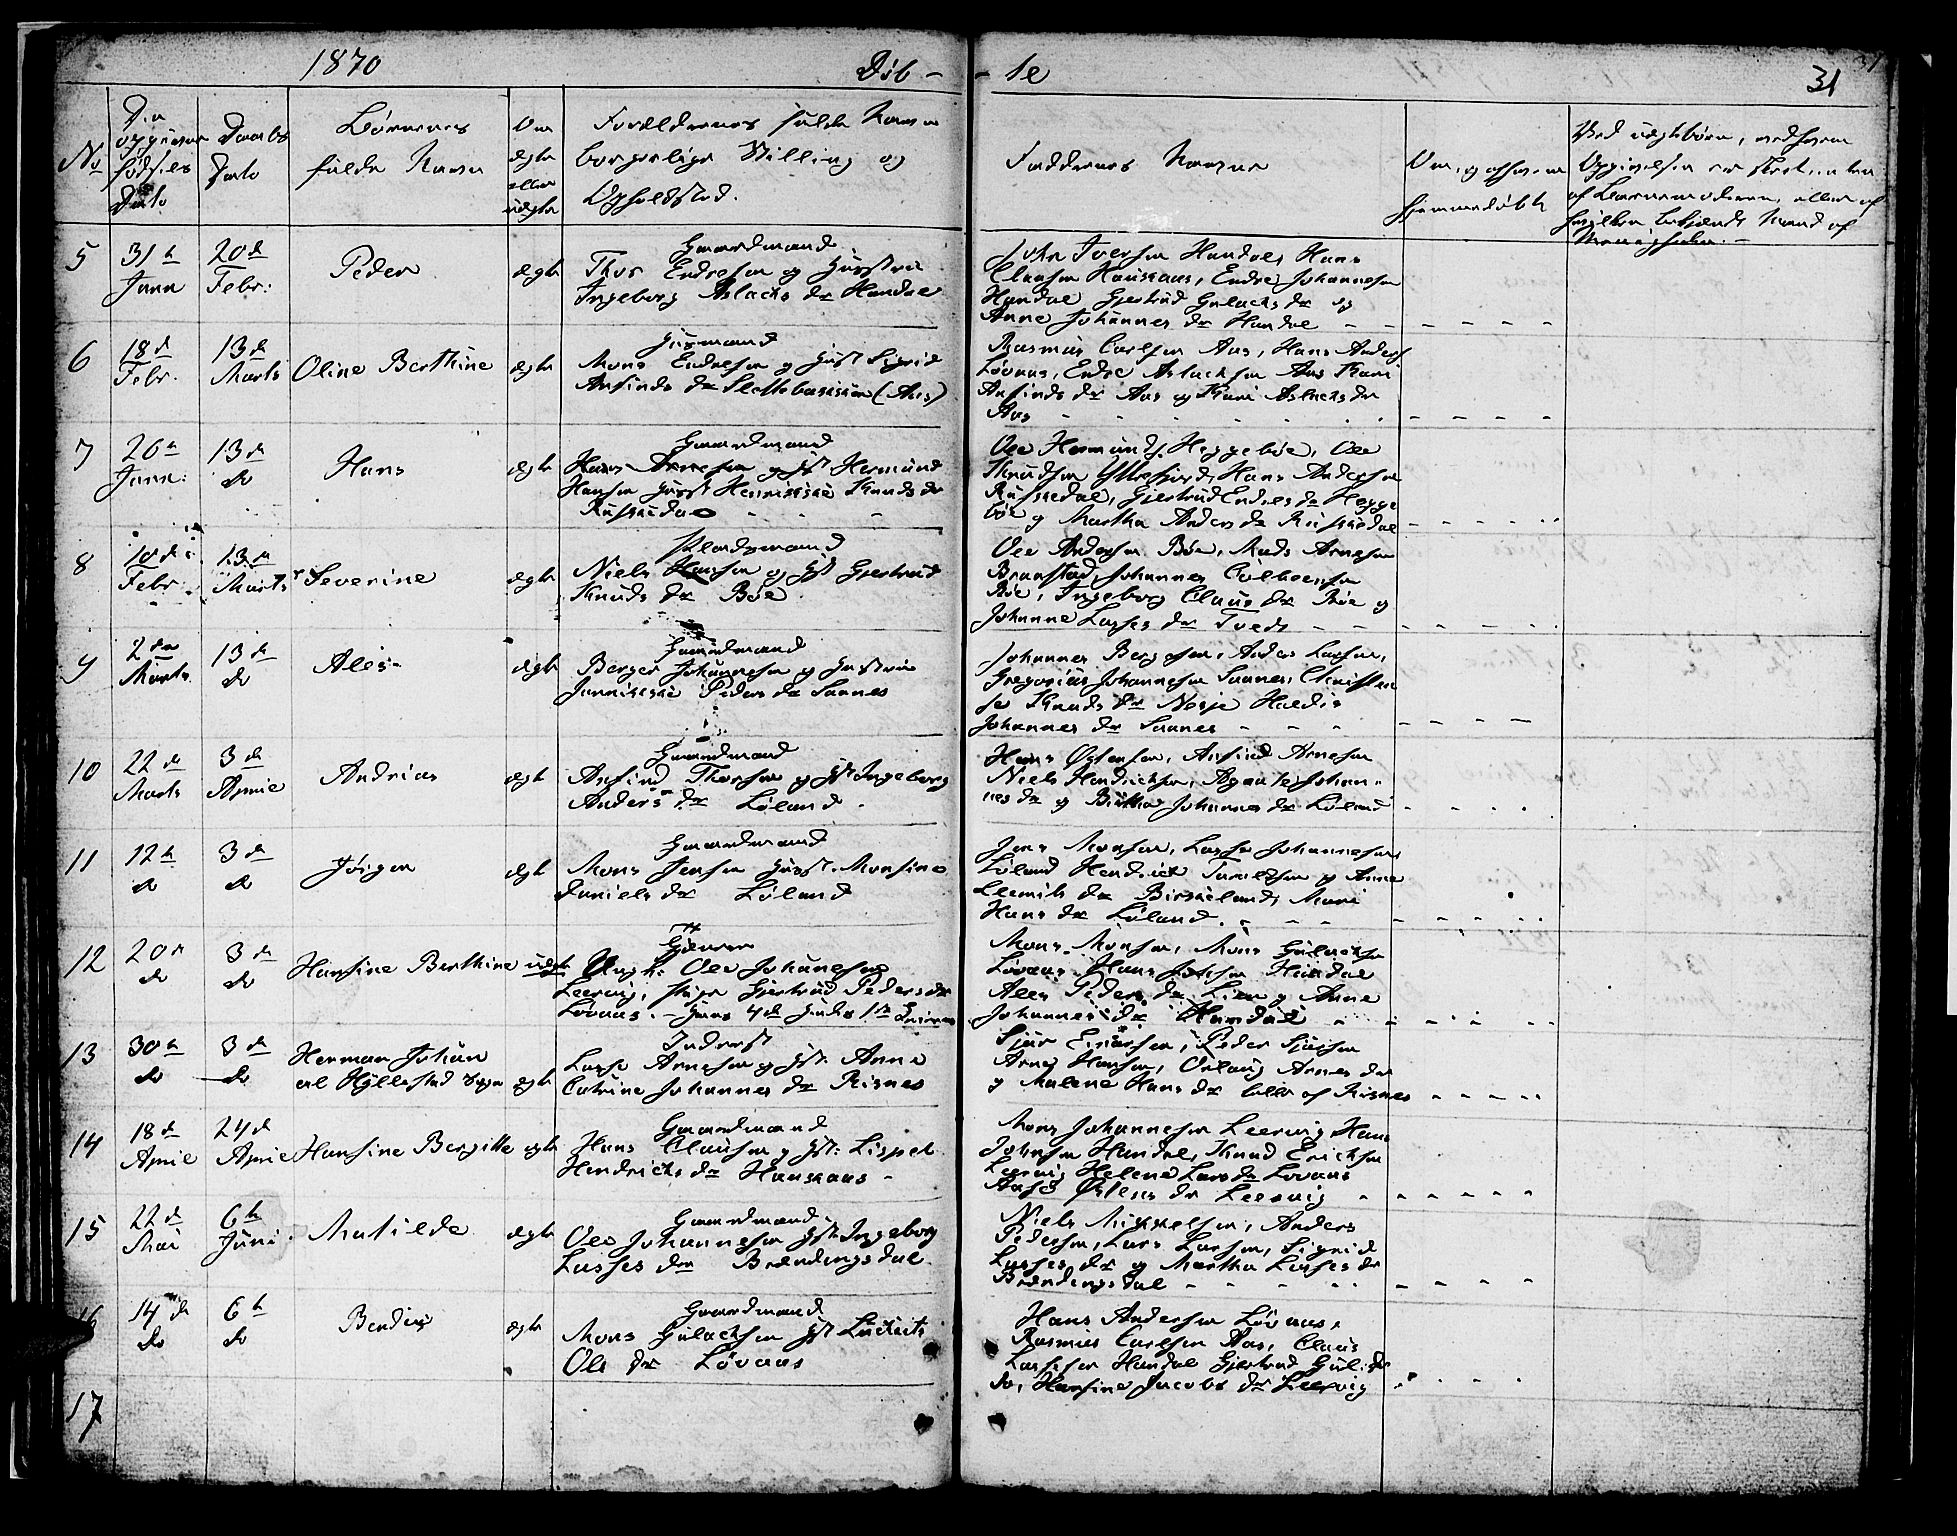 1870
Døb-
-te
31
No
Den opgivne fødsels Dato
Daabs Dato
Børnenes fulde Navne
Om ægte eller uægte
Forældrenes fulde Navne borgerlige Stilling og Opholdsted.
Faddernes Navne
Om, og af hvem hjemmedøbt
Ved uægtebørn, ved hvem Opgivelsen er skeet
af Barnemoderen, eller af
5
31te Janr
20de Febr.
Peder
ægte
Gaardmand
Thor Endresen og Hustru
Ingeborg Aslachs dr Handal
Iversen Handal, Hans
Clausen Hauskaas, Endre Johannesen
Handal Gjertrud Gulachs dr og
Anne Johannes dr Handal
6
18de Febr.
13de Marts
Oline Berthine
ægte
Husmand
Mons Endresen og Hust Sigrid
Ansinds dr Slettebakken (Aas)
Rasmus Carlsen Aas, Hans Anders
Løvaas, Endre Aslachsen Aas Kari
Ansinds dr Aas og Kari Aslachs dr
Aas
7
26te Janr.
13de do
Hans
ægte
Gaardmand
og Hst Hermund
Hansen Hust Knuds dr
Ole Hermunds. Heggebøe, Ole
Knudsen Ytrefjord, Hans Andersen
Russedal, Gjertrud Endres dr Hegge
bøe og Martha Anders dr Russedal
8
18de Febr.
13de Marts
Severine
ægte
Pladsmand
Niels Hansen og Hst Gjertrud
Knuds dr Bøe
Ole Andersen Bøe, Mads Arnesen
Branstad, Johannes
Bøe, Ingeborg Claus dr Bøe og
Johanne Lasses dr Tveit
9
2den Marts
13de do
Ales
ægte
Gaardmand
Berger Johannesen og Hustru
Peders dr Sannes
Johannes Bergesen, Anders Larsen,
Gregorius Johannesen Sannes, Christen
Knuds dr Nesje
Johannes dr Sannes
10
22de Marts
3de April
Andrias
ægte
Gaardmand
Ansind Thorsen og Hst Ingeborg
Anders dr Løland.
Hans Østensen, Ansind Arnesen
Niels Hendricksen, Agathe Johan-
nes dr og Johannes dr Løland
11
12te do
3de do
Jørgen
ægte
Gaardmand
Mons Jensen Hust. Monsine
Daniels dr Løland
Jens Monsen, Lasse Johannesen
Løland Hendrick og Anne
dr Birkeland, Mari
Hans dr Løland.
12
20de do
3de do
Hansine Berthine
uægte
Ungk. Ole Johannesen
Leervig, Pige Gjertrud Peders dr
Løvaas. - Hans 4de Hendes 1ste
Mons Monsen, Mons Gulachsen
Løvaas, Hans Handal
Ales Peders dr Lien og Anne
Johannes dr Handal
13
30te do
3de do
Herman Johan
ægte
Inderst
Lasse Arnesen og Hst. Anne
Catrine Johannes dr Risnes
Sjur Einarsen, Peder Sjursen
Arne Hansen, Arnes dr
og Malene Hans dr alle af Risnes
14
18de April
24de April
Hansine Bergitte
ægte
Gaardmand
Hans Clausen og Hst: Lispet
Hendricks dr Hauskaas
Mons Johannesen Leervig Hans
Johnsen Handal, Knud Ericksen
Leervig Helene Lars dr Løvaas
Østens dr Leervig
15
22de Mai
6te Juni
Matilde
ægte
Gaardmand
Ole Johannesen Hst. Ingeborg
Lasses dr Brændingsdal
Niels Mikkelsen, Anders
Pedersen, Lars Larsen, Sigrid
Lasses dr og Martha Lasses dr
Brændingsdal
16
14de do
6te do
ægte
Gaardmand
Mons Gulachsen Hst
Ole dr Løvaas
Hans Andersen Løvaas,
Rasmus Carlsen Aas, Claus
Lassesen Handal Gjertrud
do, Hansine Jacobs dr Leervig
17